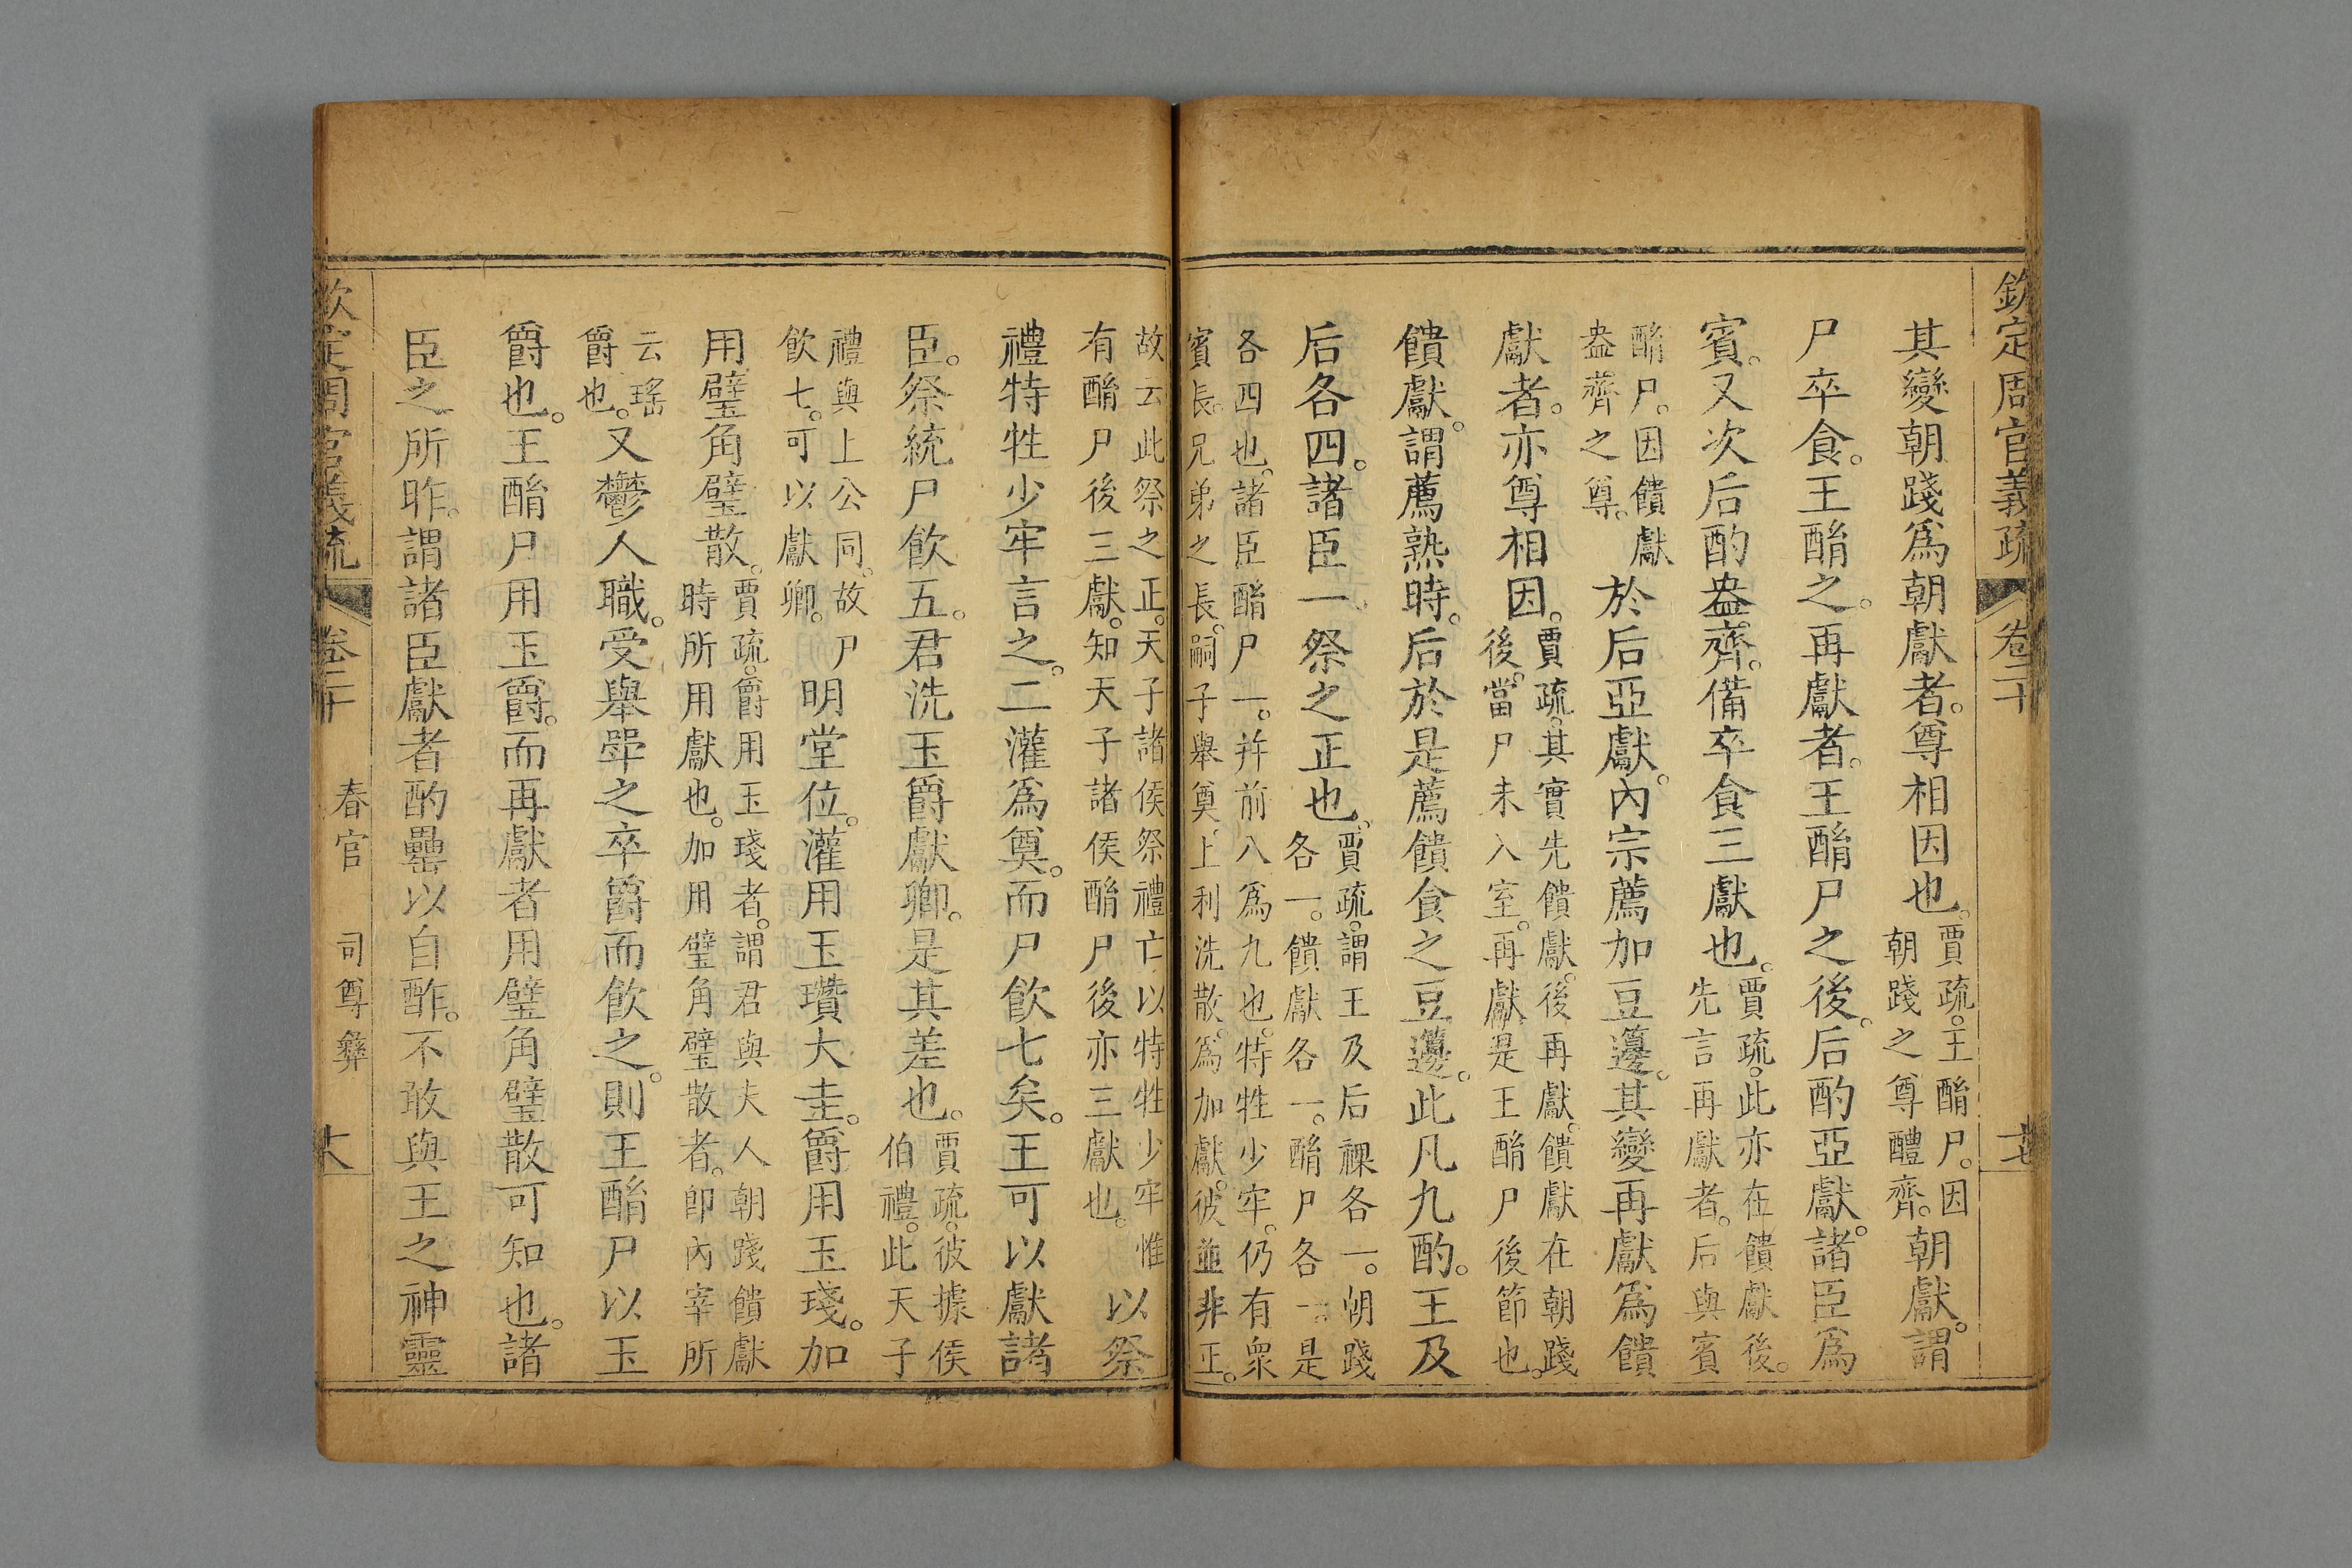 欽定周官義疏 卷二十 十七
其變朝踐爲朝獻者。尊相因也。賈疏。王酳尸。因朝踐之尊醴齊。朝獻。謂
尸卒食。王酳之。再獻者。王酳尸之後。后酌亞獻。諸臣爲
賓。又次后酌盎齊。備卒食三獻也。賈疏。此亦在饋獻後。先言再獻者。后與賓
酳尸。因饋獻盎齊之尊。於后亞獻。內宗薦加豆籩。其變再獻爲饋
獻者。亦尊相因。賈疏。其實先饋獻。後再獻。饋獻在朝踐後。當尸未入室。再獻是王酳尸後節也。
饋獻。謂薦熟時。后於是薦饋食之豆籩。此凡九酌。王及
后各四。諸臣一。祭之正也。賈疏。謂王及后祼各一。朝踐各一。饋獻各一。酳尸各一。是
各四也。諸臣酳尸一。并前八爲九也。特牲少牢。仍有衆賓長。兄弟之長。嗣子舉奠。上利洗散。爲加獻。彼並非正。
故云此祭之正。天子諸侯祭禮亡。以特牲少牢惟有酳尸後三獻。知天子諸侯酳尸後亦三獻也。以祭
禮特牲少牢言之。二灌爲奠。而尸飲七矣。王可以獻諸
臣。祭統尸飲五。君洗玉爵獻卿。是其差也。賈疏。彼據侯伯禮。此天子
禮與上公同。故尸飲七。可以獻卿。明堂位。灌用玉瓚大圭。爵用玉琖。加
用璧角璧散。賈疏。爵用玉琖者。謂君與夫人朝踐饋獻時所用獻也。加用璧角璧散者。卽內宰所
云瑤爵也。又鬱人職。受舉斝之卒爵而飲之。則王酳尸以玉
爵也。王酳尸用玉爵。而再獻者用璧角璧散可知也。諸
臣之所昨。謂諸臣獻者酌罍以自酢。不敢與王之神靈
欽定周官義疏 卷二十 春官 司尊彝 十八